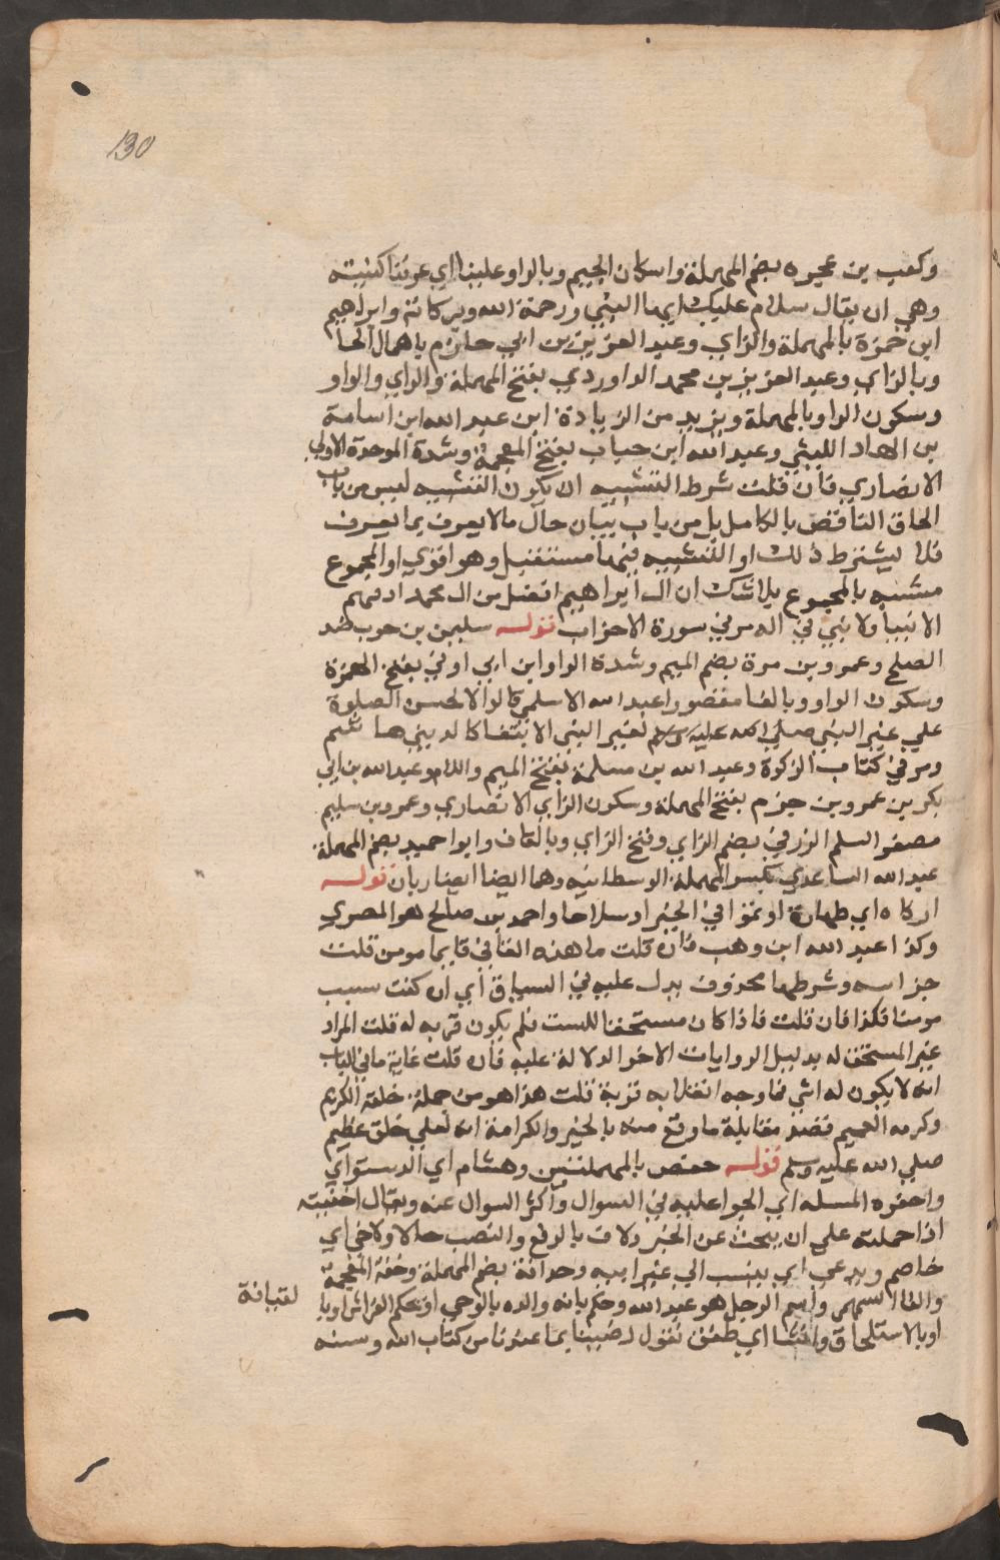 130
وكعب بن عجره بضم المهملة واسكان الجيم وبالراو علينا اي عرفنا كيفيته
وهي ان يقال سلام عليك ايها النبي ورحمة الله وبركاته وابراهيم
ابن حمزة بالمهملة والزاي وعبد العزيز بن ابي حازم باهمال الحا
وبالزاي وعبد العزيز بن محمد الداوردي بفتح المهملة والراي والواو
وسكون الرا وبالمهملة ويزيد من الزيادة ابن عبد الله ابن اسامة
بن الهاد الليثي وعبد الله ابن خباب بفتح المعجمة وشدة الموحدة الاولي
الانصاري فان قلت شرط التشبيه ان يكون التشبيه ليس من باب
الحاق الناقص بالكامل بل من باب بيان حال مالا يعرف بما يعرف
فلا يشترط ذلك او التشبيه فيما مستقبل وهو اقوي او المجموع
مشبه بالمجموع بلا شك ان ال ابراهيم افضل من ال محمد اذ فيهم
الانبيا ولا نبي في اله مر في سورة الاحزاب قوله سليمن بن حرب ضد
الصلح وعمرو بن مرة بضم الميم وشدة الراو ابن ابي اوفي بفتح الهمزة
وسكون الواو وبالفا مقصورا عبد الله الاسلمي قالوا لا تحسن الصلوة
علي غير النبي صلي الله عليه وسلم لغير النبي الا تبعا كاله بني هاشم
ومر في كتاب الزكوة وعبد الله بن مسلمة بفتح الميم واللام وعبد الله بن ابي
بكر بن عمرو بن حزم بفتح المهملة وسكون الزاي الانصاري وعمرو بن سليم
مصغر السلم الزرقي بضم الزاي وفتح الراي وبالقاف وابو حميد بضم المهملة
عبد الله الساعدي بكسر المهملة الوسطانيه وهما ايضا انصاريان قوله
ازكاه اي طهارة او نموا في الخير او صلاحا واحمد بن صالح هو المصري
وكذا عبد الله ابن وهب فان قلت ما هذه الفا في فايما مومن قلت
جزاسه وشرطها محذوف يدل عليه في السياق اي ان كنت سببت
مومنا فكذا فان قلت فاذا كان مستحقا للست فلم يكون قربه له قلت المراد
غير المستحق له بدليل الروايات الاخر الدالة عليه فان قلت غاية ما في الباب
انه لا يكون له اثي فما وجه انقلابه قربة قلت هذا هو من جملة خلقه الكريم
وكرمه العميم قصد مقابلة ما وقع منه بالخير والكرامة انه لعلي خلق عظيم
صلي الله عليه وسلم قوله حفص بالمهملتين وهشام اي الدستواي
واحفوه المسله اي الحوا عليه في السوال واكثر السوال عنه ويقال احفيته
اذا حملته علي ان يبحث عن الخبر ولاف بالرفع والنصب حالا ولاحي اي
خاصم ويدعي اي ينسب الي غير ابيه وحذافة بضم المهملة وخفة المعجمة
والفا السهمي واسم الرجل هو عبد الله وحكم بانه والده بالوحي او بحكم الفراش او با لقيافة
او بالاستلحاق وانشا اي طفق نقول رضينا بما عندنا من كتاب الله وسنه